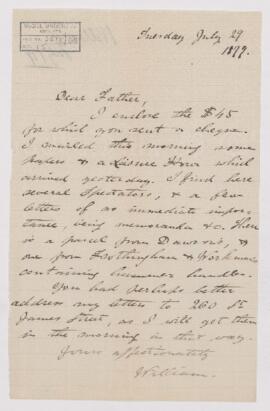 Tuesday July 29
1879.
Dear Father,
I enclose the $45
for which you sent a cheque.
I mailed this morning some
papers & a Leisure Hour which
arrived yesterday. I find here
several Spectators, & a few
letters of no immediate impor-
tance, being memoranda &c. There
is a parcel from Dawson's, &
one from Frothingham & Workman
containing hammer handles.
You had perhaps better
address my letters to 260 St
James Street, as I will get them
in the morning in that way.
Yours affectionately
William.